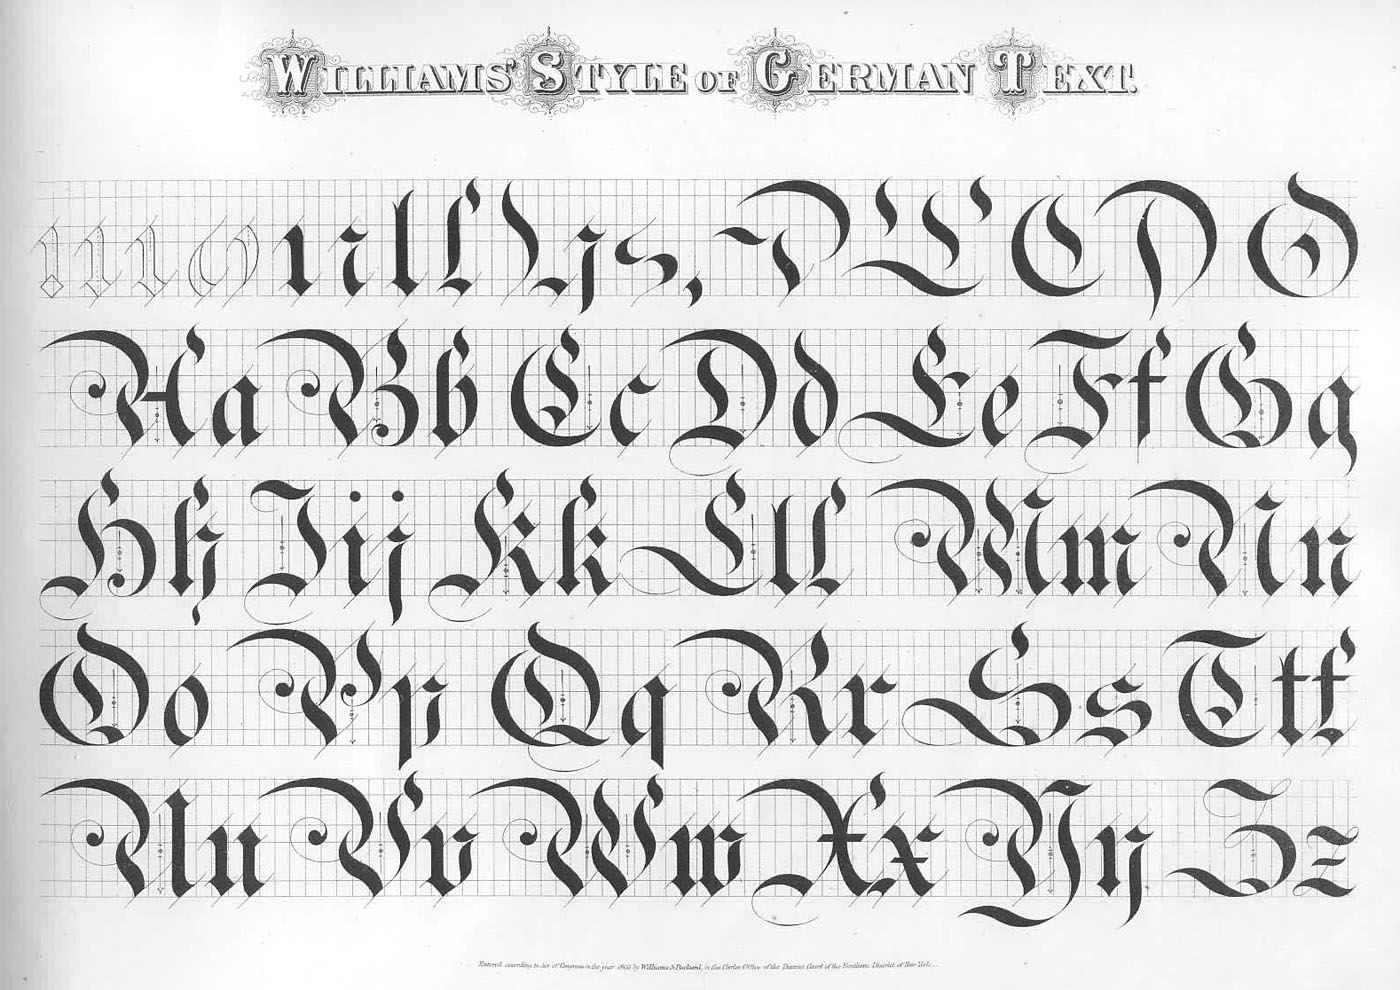 WILLIAMS' STYLE OF GERMAN TEXT.
Aa Bb Cc Dd Ee Ff Gg
Hh Iij Kk Ll Mm Nn
Oo Pp Qq Rr Ss Tt
Uu Vv Ww Xx Yy Zz
Entered, according to Act of Congress in the year 1866 by Williams & Packard, in the Clerks Office of the District Court of the Southern District of New York.